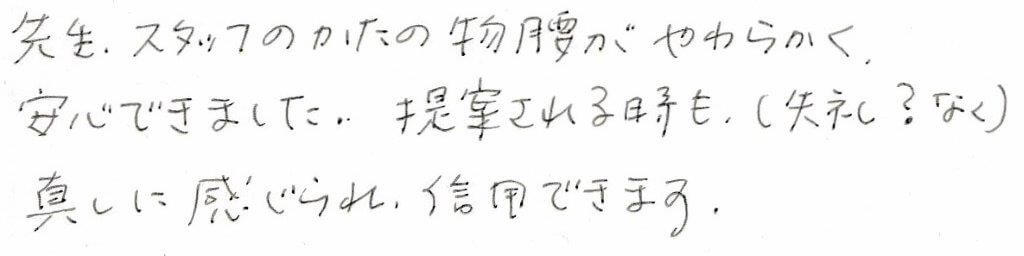 先生、スタッフのかたの物腰がやわらかく、
安心できました。提案される時も、(失礼?なく)
真しに感じられ、信用できます。